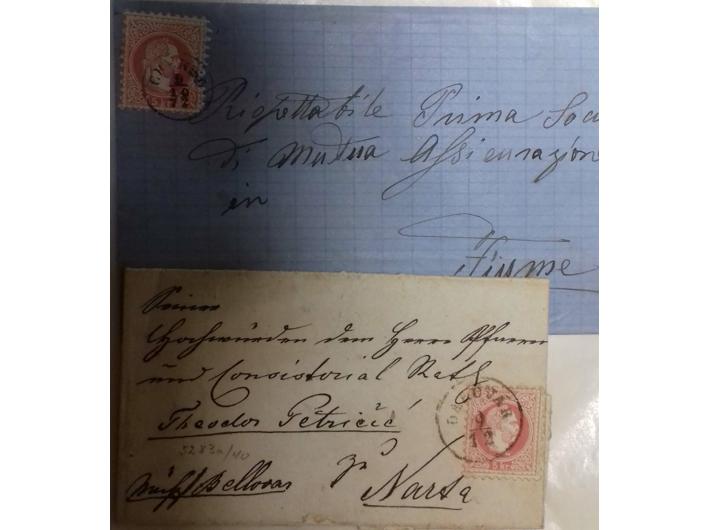 9
10
72
5 Kr.
Rispettabile Prima Soc
di Mutua Assicurazion
in
Fiume
Seiner
Hochwürden dem Herrn Pfarrer
und Consistorial Rath
Theodor Petričić
5283a/40
Bellovar zu Narta
DARUVÁR
9
12
5 Kr.